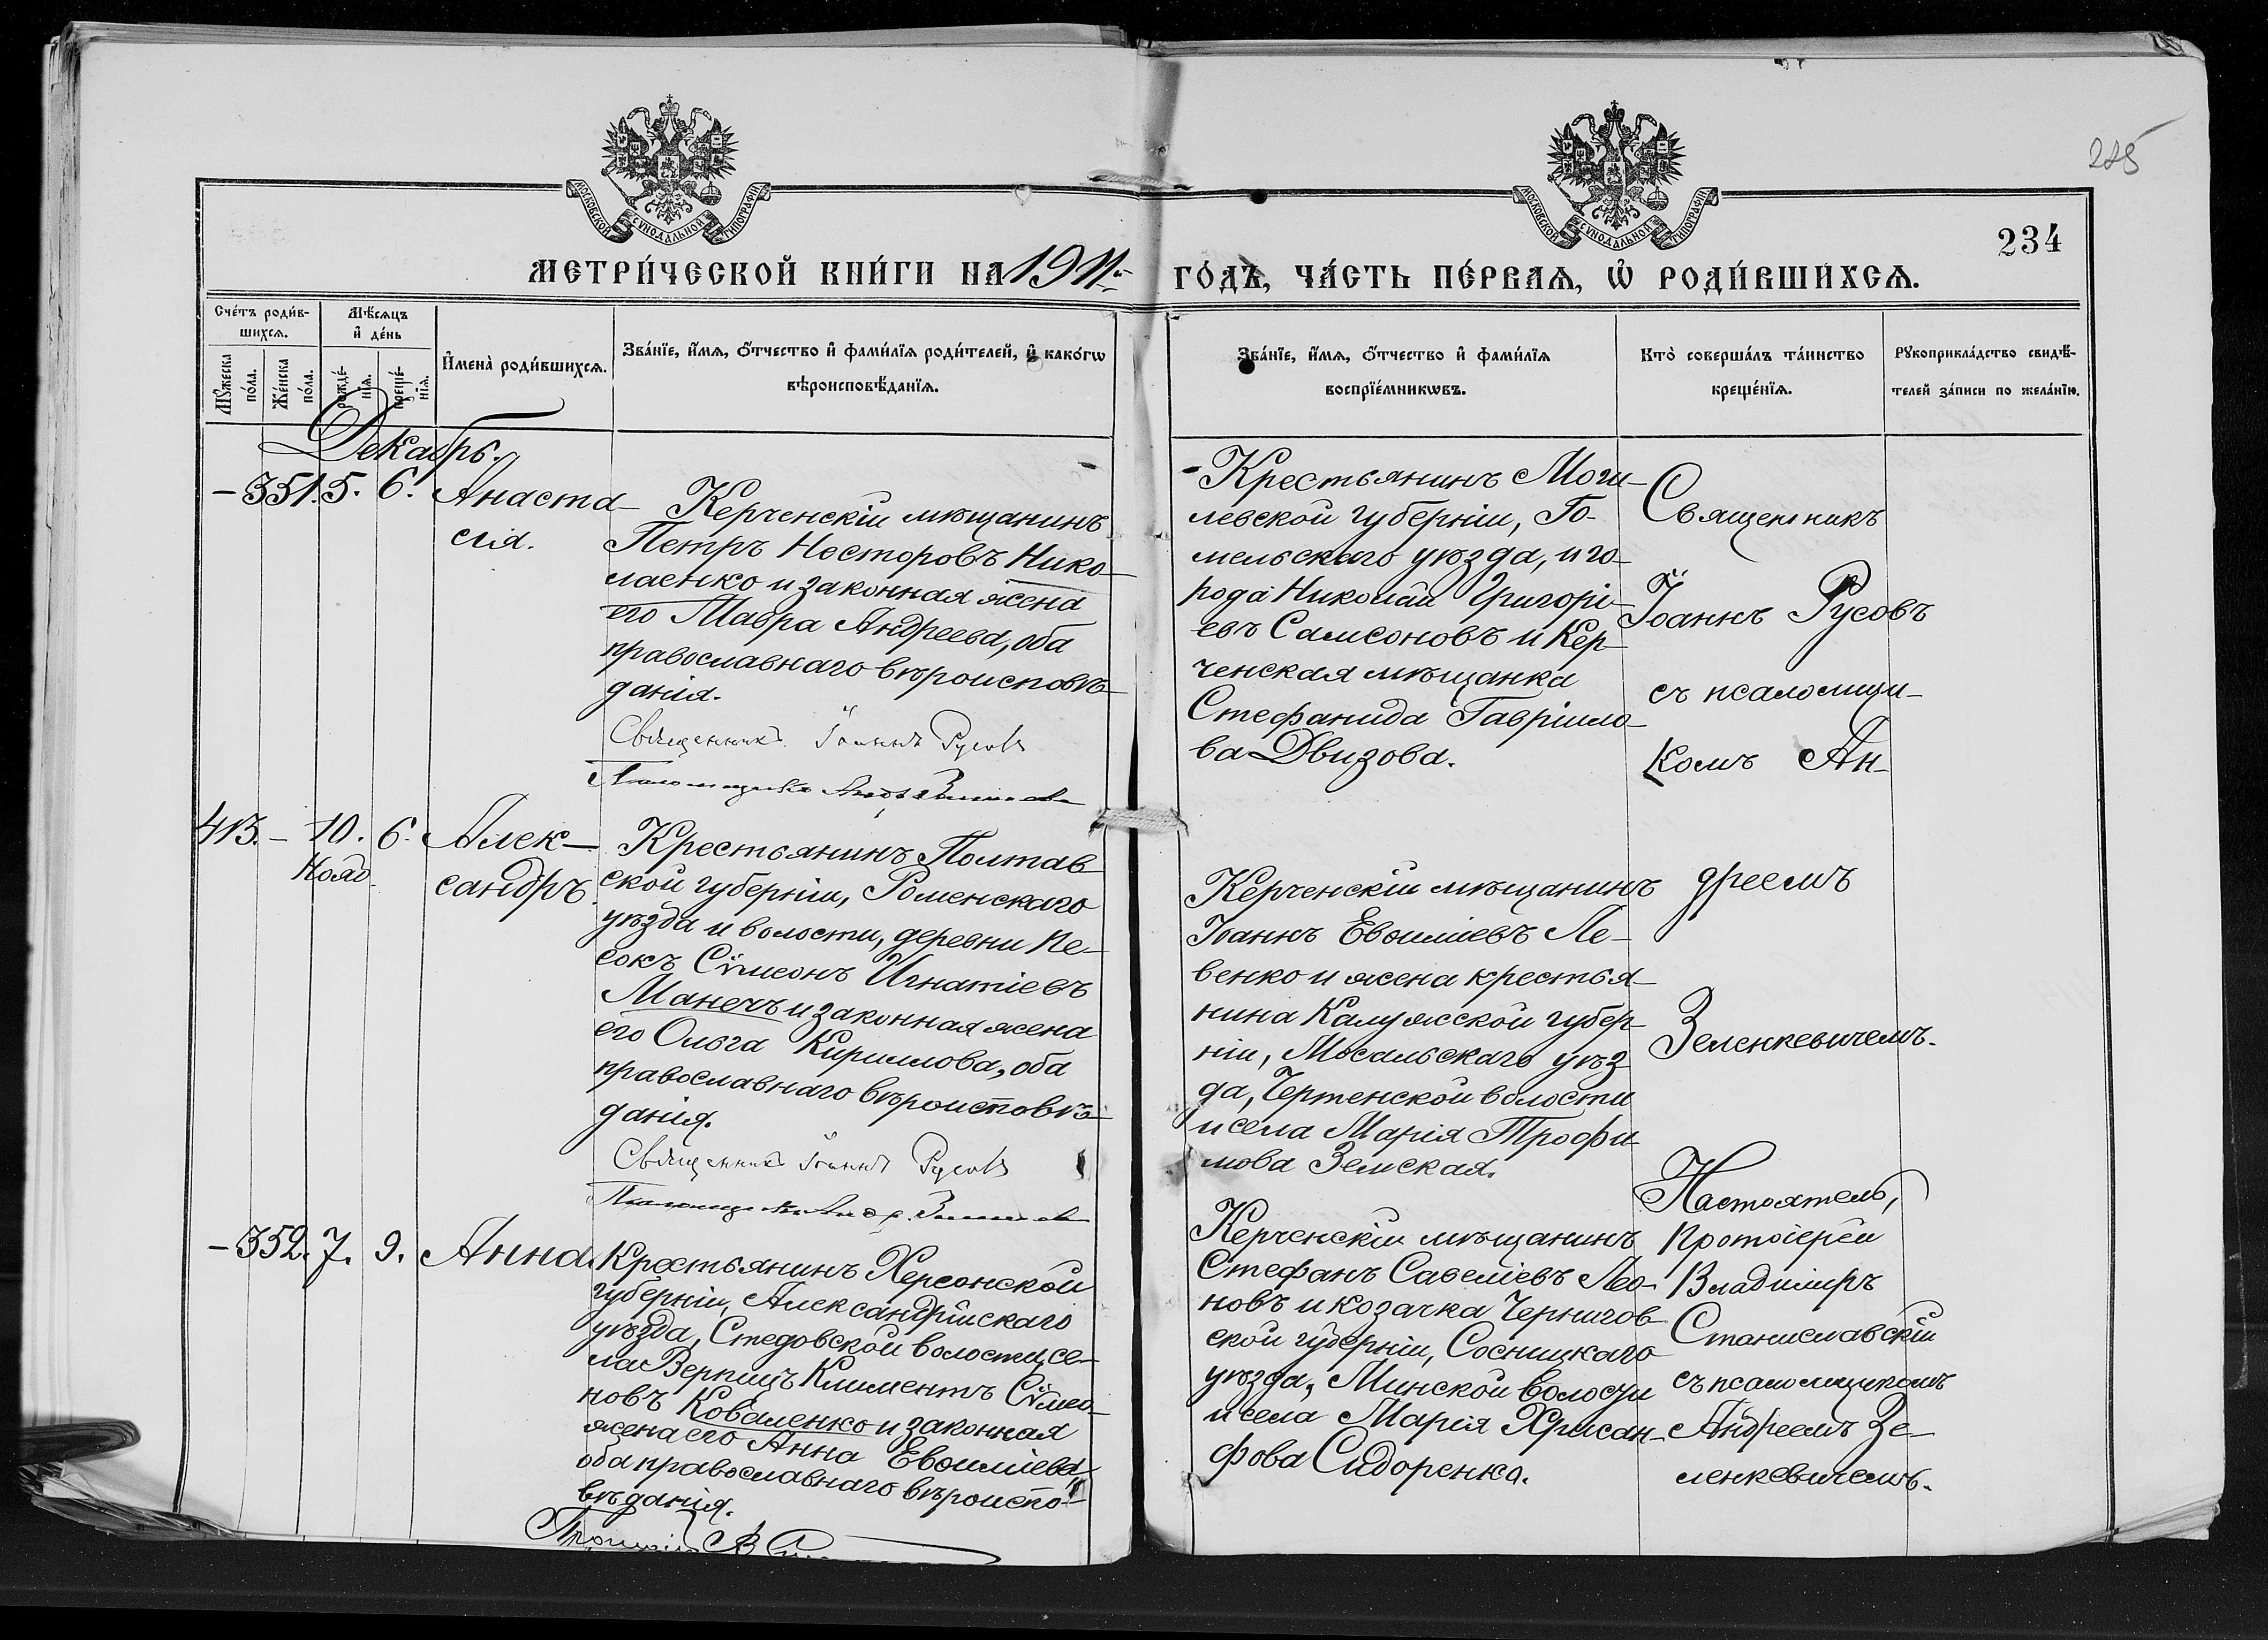 225
МОСКОВСКОЙ СѴНОДАЛЬНОЙ ТИПОГРАФІИ
МОСКОВСКОЙ СѴНОДАЛЬНОЙ ТИПОГРАФІИ
234
МЕТРИ́ЧЕСКОЙ КНИ́ГИ НА 1911й ГО́ДЪ, ЧА́СТЬ ПЕ́РВАѦ, Ѡ҆ РОДИ́ВШИХСѦ.
Сче́тъ роди́в-
шихсѧ.
Мꙋ́жеска
по́ла.
Же́нска
по́ла.
Мѣ́сѧцъ
и҆ де́нь
рожде́-
нїѧ.
креще́-
нїѧ.
И҆мена̀ роди́вшихсѧ.
Зва́нїе, и҆́мѧ, ѻ҆́тчество и҆ фами́лїѧ роди́телей, и҆ како́гѡ
вѣроисповѣ́данїѧ.
Зва́нїе, и҆́мѧ, ѻ҆́тчество и҆ фами́лїѧ
воспрїе́мникѡвъ.
Кто̀ соверша́лъ та́инство
креще́нїѧ.
Рꙋкоприкла́дство свидѣ́-
телей за́писи по жела́нїю.
Декабрь.
- 351. 5. 6. Анаста-
сія.
Керченскій мѣщанинъ
Петръ Несторовъ Нико-
лаенко и законная жена
его Мавра Андреева, оба
православнаго вѣроисповѣ-
данія.
Священникъ Іоаннъ Русовъ
Псаломщикъ
- Крестьянинъ Моги-
левской губерніи, Го-
мельскаго уѣзда, и го-
рода Николай Григорі-
евъ Самсоновъ и Кер-
ченская мѣщанка
Стефанида Гавріило-
ва Двизова.
Священникъ
Іоаннъ Русовъ
съ псаломщи-
комъ Ан-
дреемъ
Зеленкевичемъ.
413. - 10. 6. Алек-
Нояб.
сандръ.
Крестьянинъ Полтав
ской губерніи, Роменскаго
уѣзда и волости, деревни Пе-
сокъ Сѵмеонъ Игнатіевъ
Манечъ и законная жена
его Ольга Кириллова, оба
православнаго вѣроисповѣ-
данія.
Священникъ Іоаннъ Русовъ
Псаломщикъ
Керченскій мѣщанинъ
Іоаннъ Евѳиміевъ Ле-
венко и жена крестья-
нина Калужской губер-
ніи, Мосальскаго уѣз-
да, Чертенской волости
и села Марія Трофи-
мова Земская.
- 352. 7. 9. Анна.
Крестьянинъ Херсонской
губерніи, Александрійскаго
уѣзда, Стедовской волости, се-
ла Верпицъ Климентъ Сѵмео-
новъ Коваленко и законная
жена его Анна Евѳиміева,
оба православнаго вѣроиспо-
вѣданія.
Керченскій мѣщанинъ
Стефанъ Савеліевъ Лео-
новъ и козачка Чернигов-
ской губерніи, Сосницкаго
уѣзда, Минской волости
и села Марія Хрисан-
фова Сидоренко.
Настоятель,
Протоіерей
Владиміръ
Станиславскій
съ псаломщикомъ
Андреемъ Зе-
ленкевичемъ.